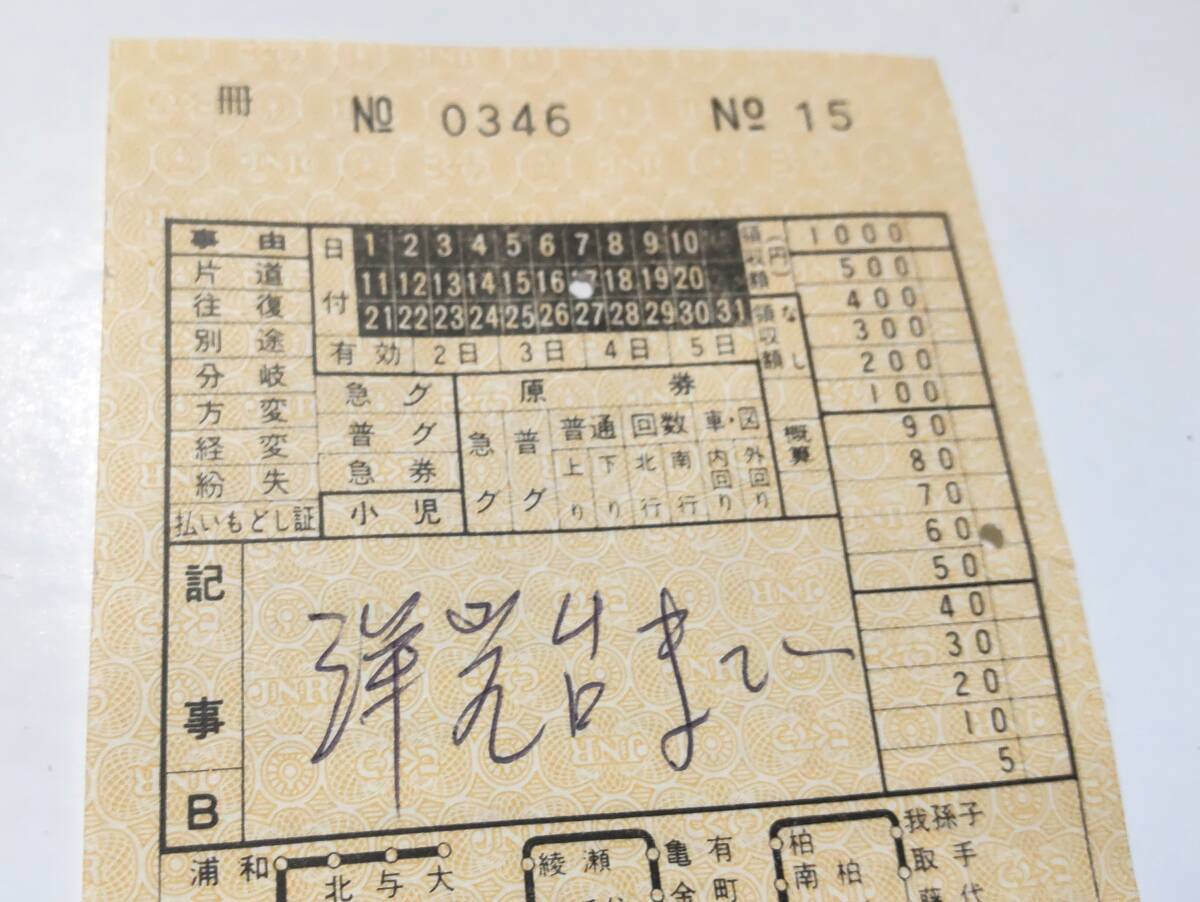 冊 № 0346 № 15
事由
片道
往復
別途
分岐
方変
経変
紛失
払いもどし証
日付
1 2 3 4 5 6 7 8 9 10
11 12 13 14 15 16 17 18 19 20
21 22 23 24 25 26 27 28 29 30 31
有効 2日 3日 4日 5日
急グ
普グ
急券
小児
原券
急グ 普グ 普通 回数 車・図
上り 下り 北行 南行 内回り 外回り
領収額(円)
領収額なし
概算
1000
500
400
300
200
100
90
80
70
60
50
40
30
20
10
5
記事
B
浦和
北 与 大
綾瀬
亀 有
金 町
柏
南柏
我孫子
取手
藤代